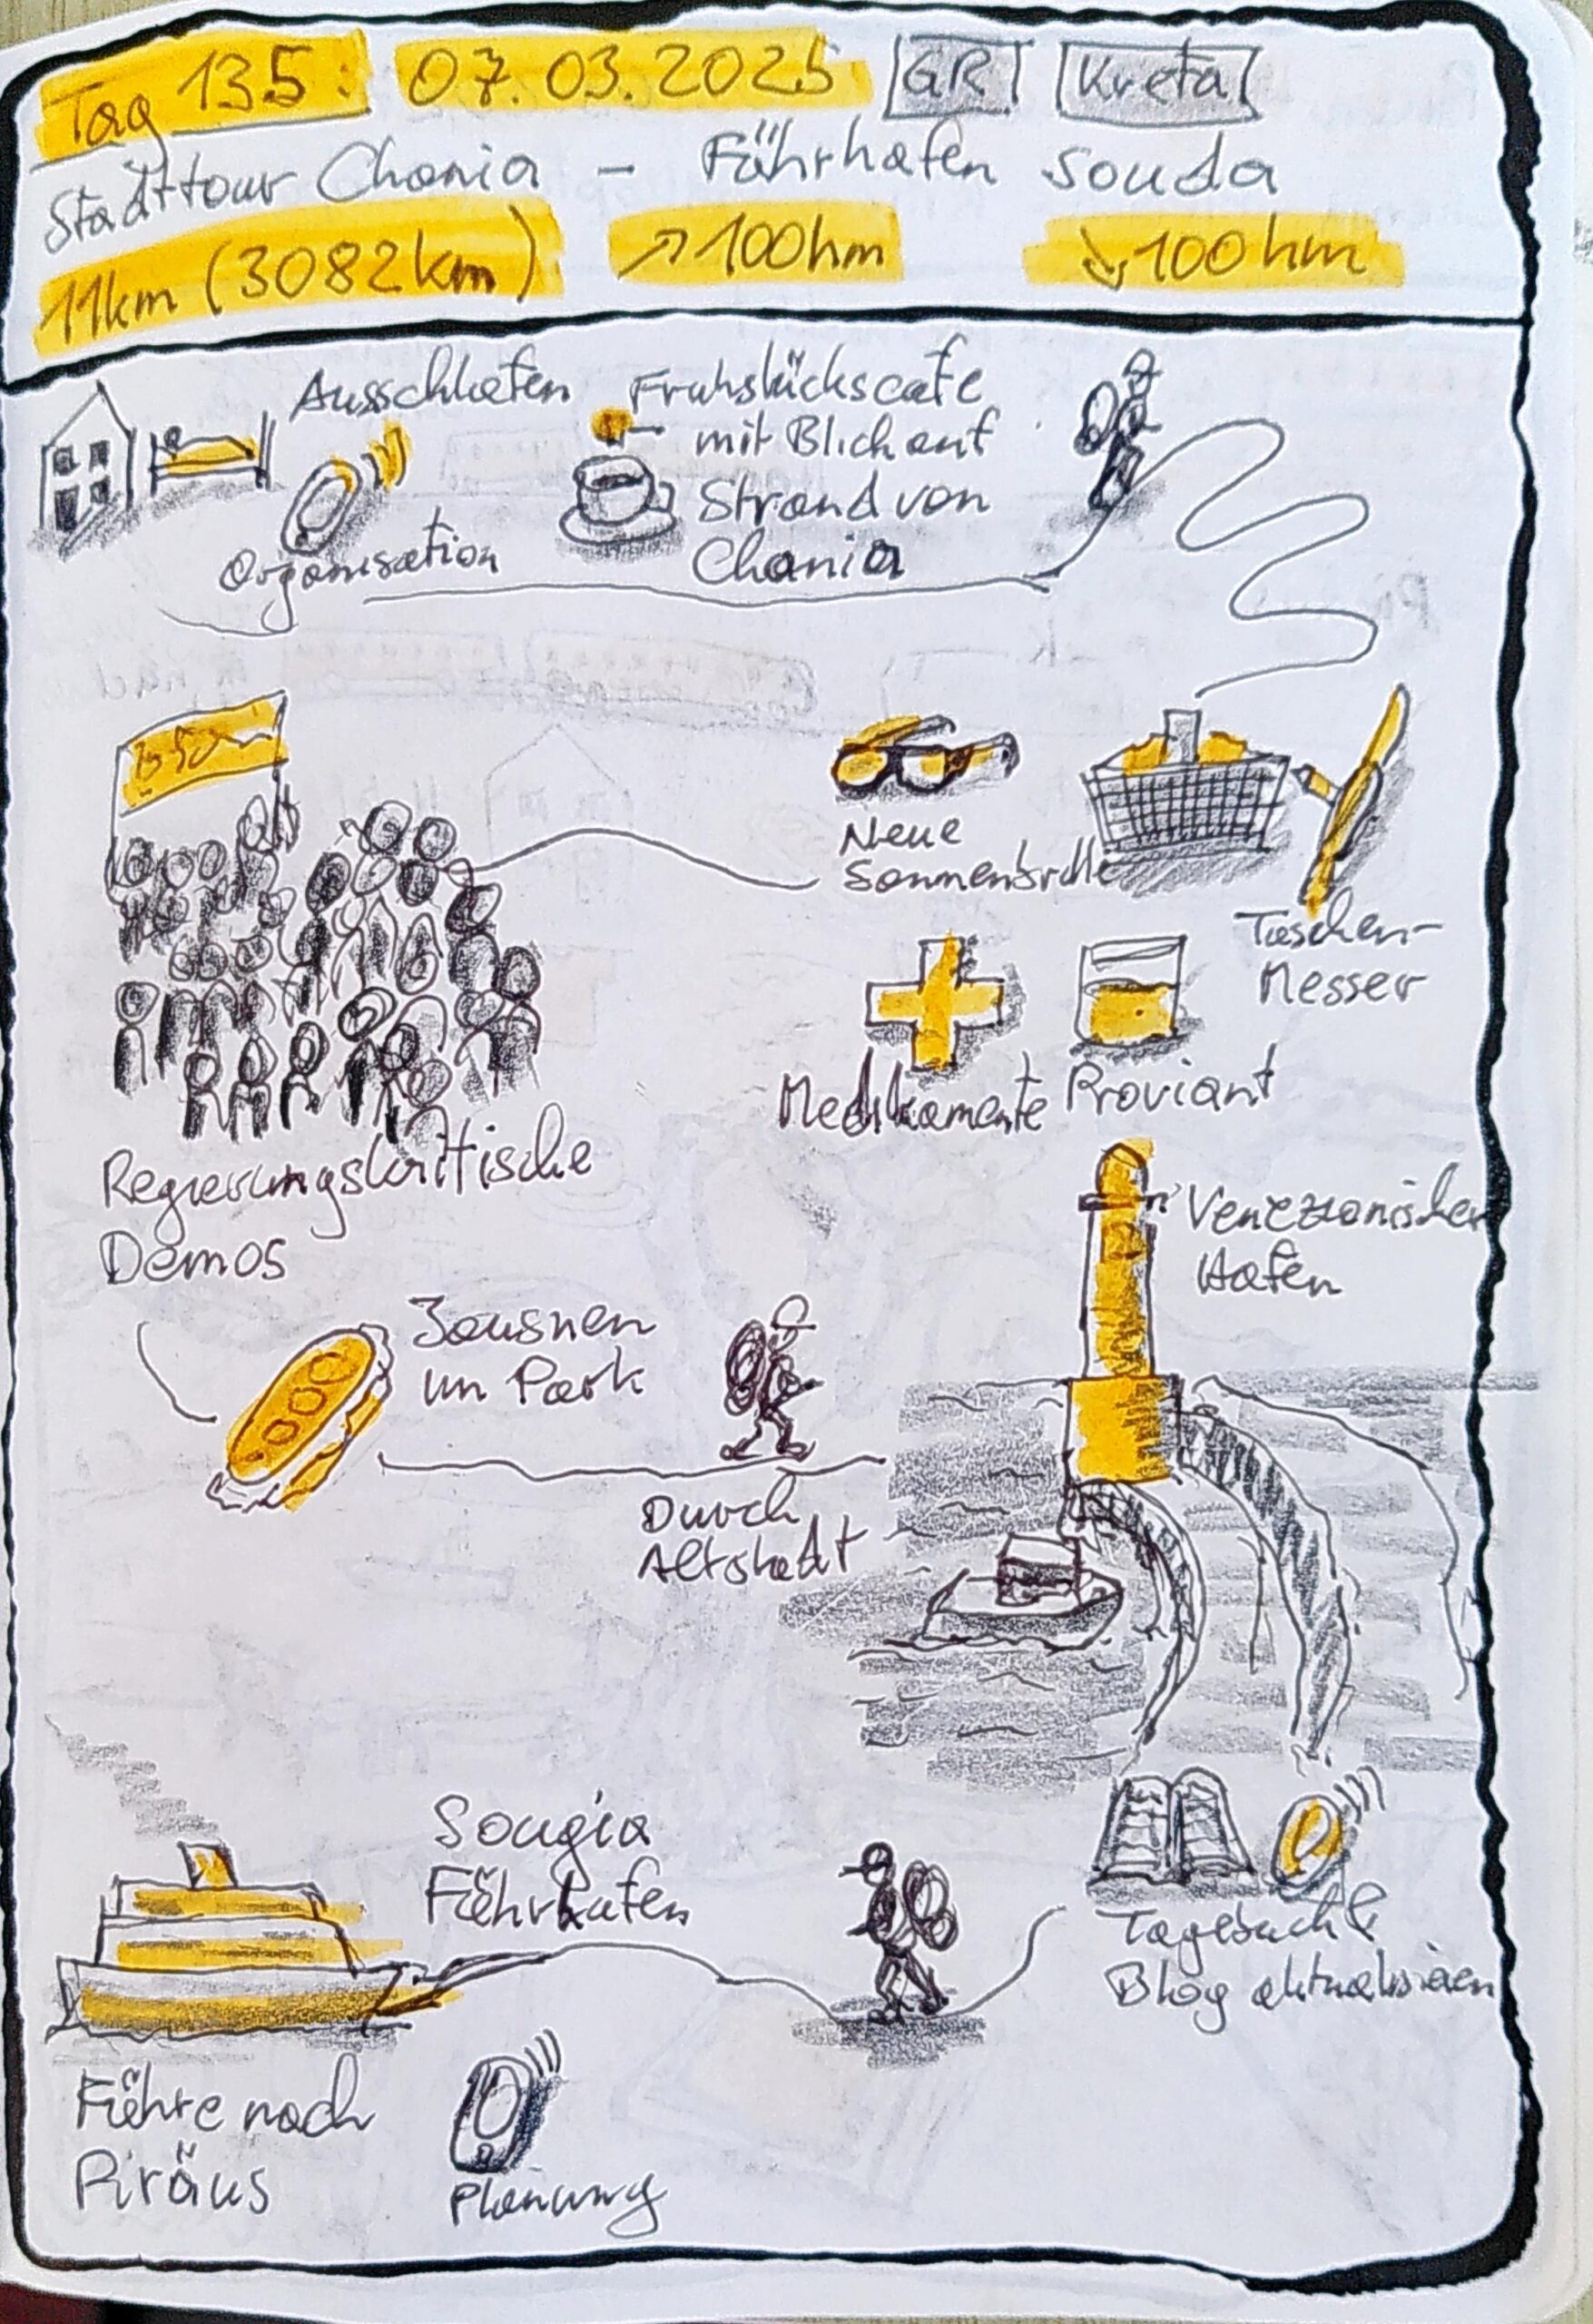 Tag 135: 07.03.2025 GR Kreta
Stadttour Chania – Fährhafen Souda
11km (3082km) ↗100hm ↘100hm
Ausschlafen
Organisation
Frühstückscafé
mit Blick auf
Strand von
Chania
Neue
Sonnenbrille
Taschen-
Messer
Medikamente
Proviant
Regierungskritische
Demos
Jausnen
im Park
Durch
Altstadt
Venezianischer
Hafen
Tagebuch &
Blog aktualisieren
Sougia
Fährhafen
Fähre nach
Piräus
Planung